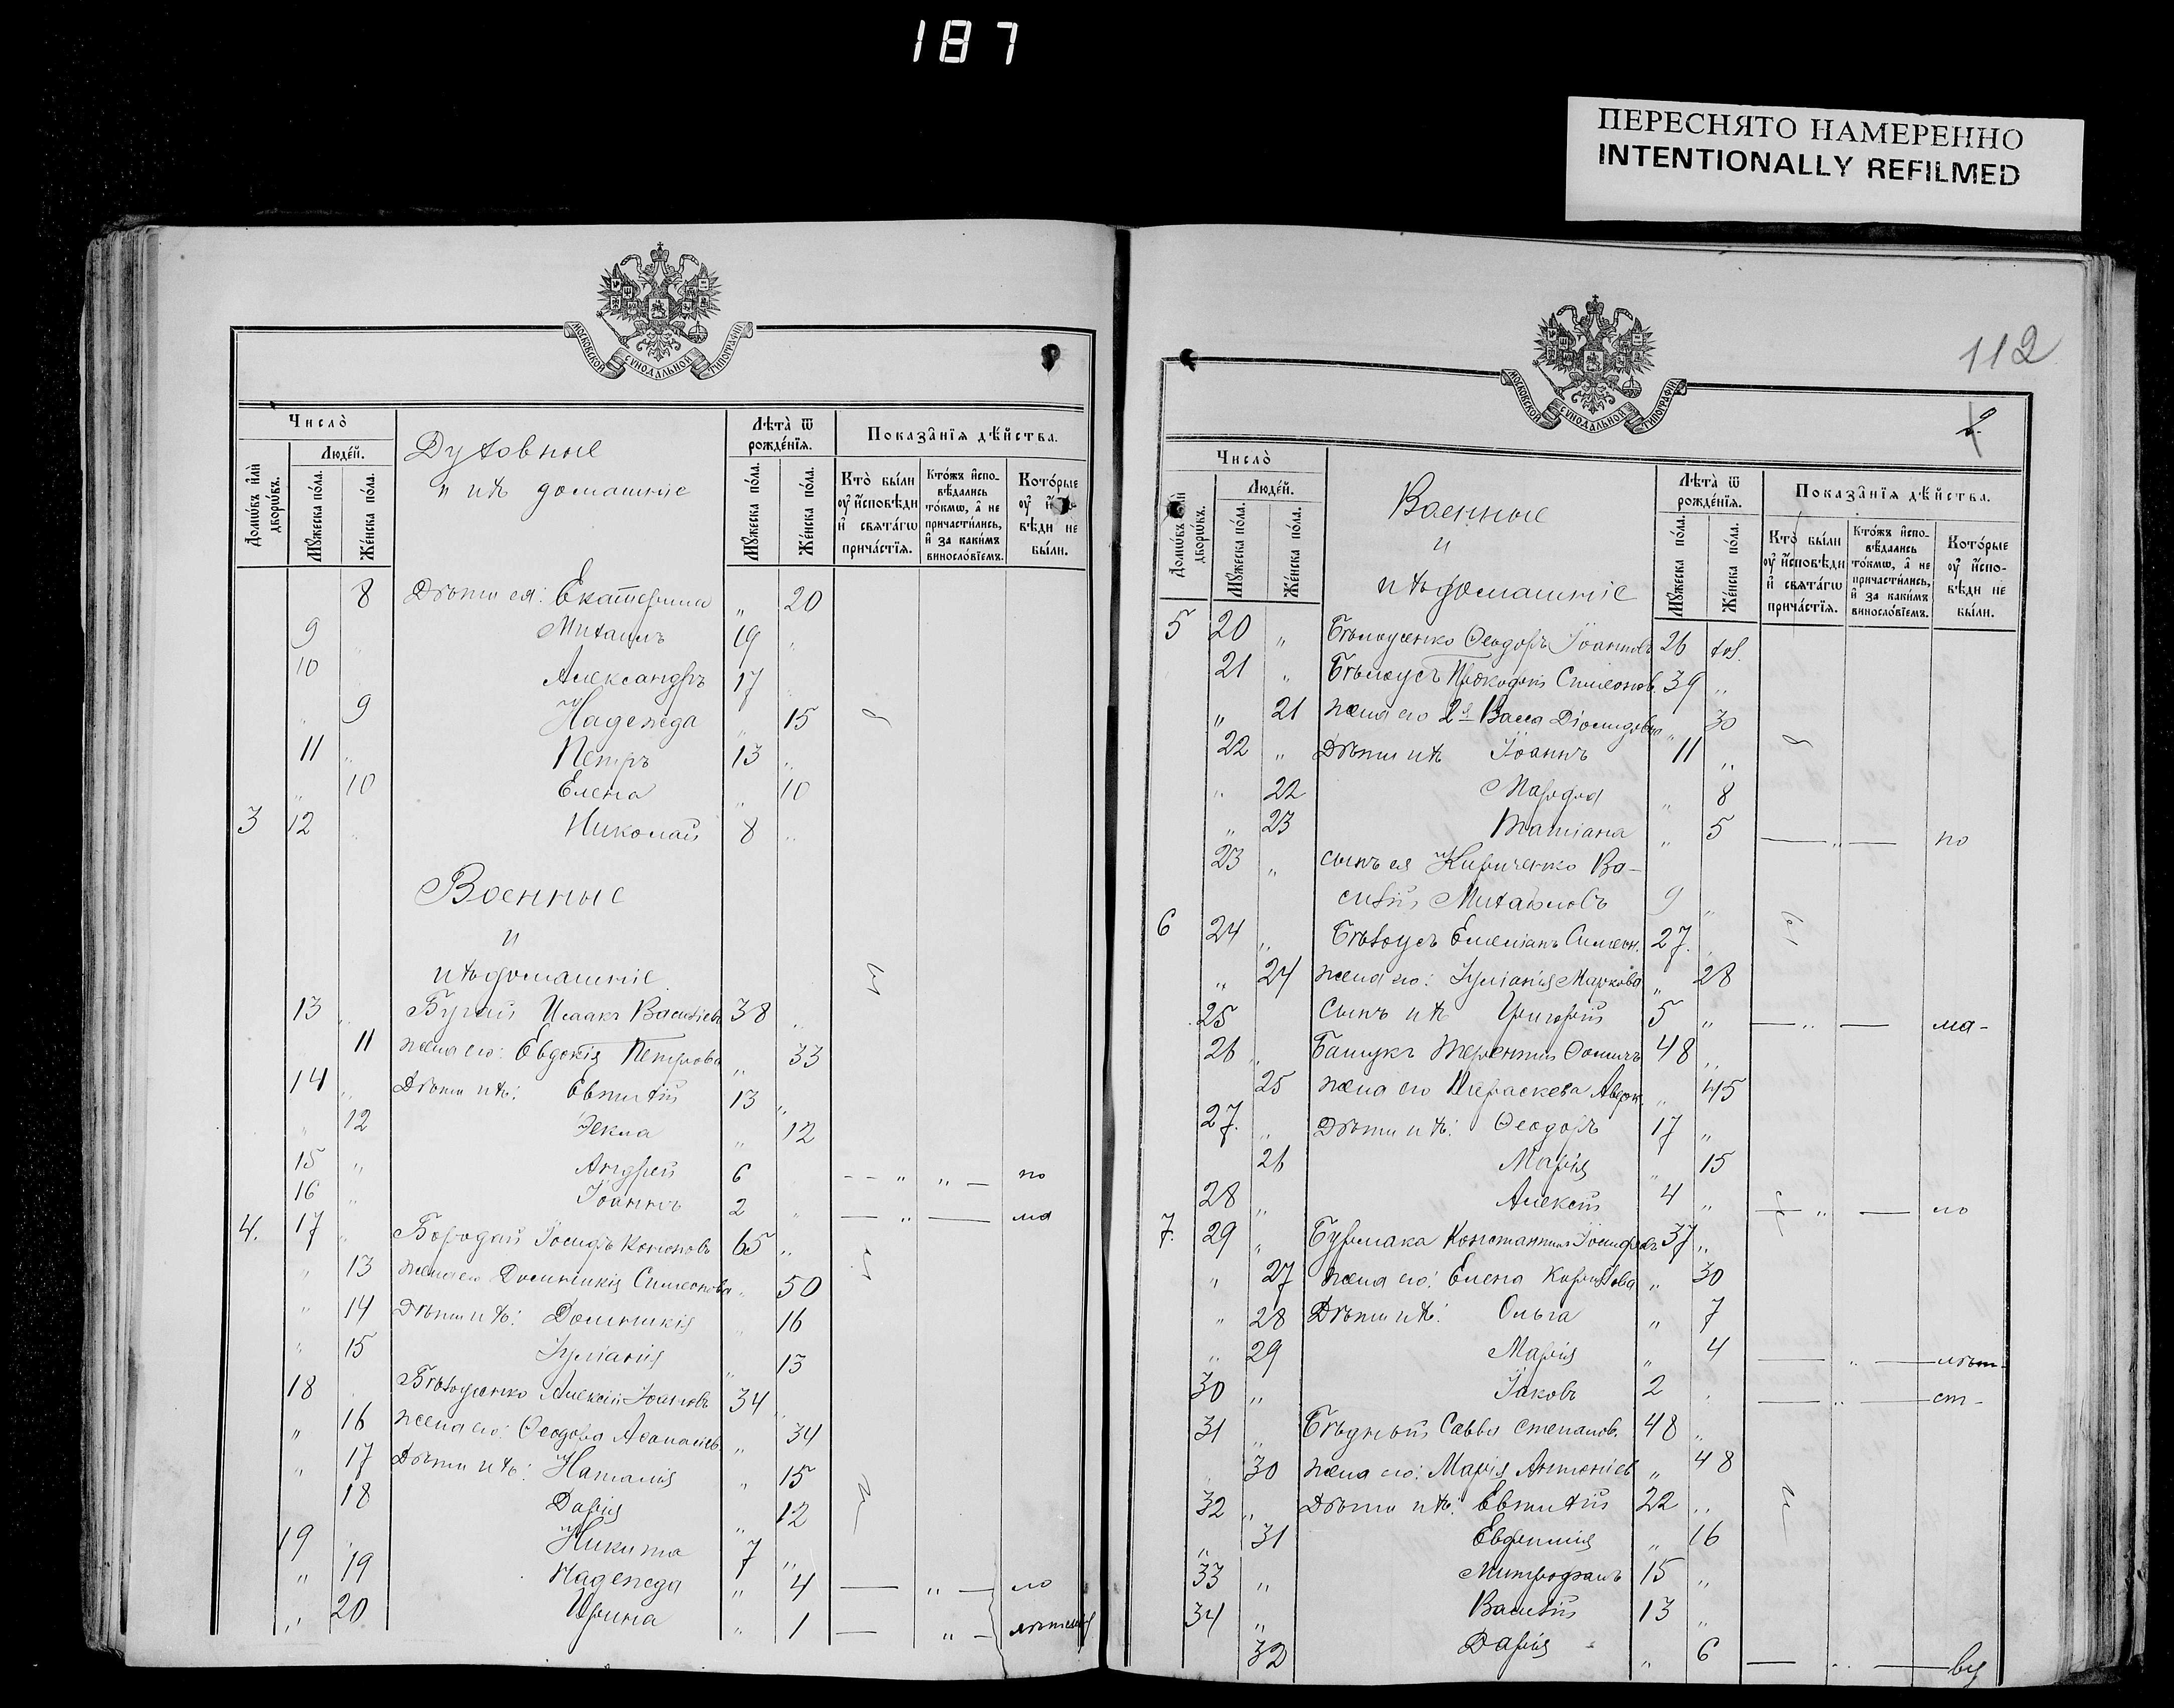 187
ПЕРЕСНЯТО НАМЕРЕННО
INTENTIONALLY REFILMED
МОСКОВСКОЙ СѴНОДАЛЬНОЙ ТИПОГРАФІИ
Число̀
Людє́й.
Домѡ́въ и҆лѝ дворѡ́въ.
Мꙋ́жеска по́ла.
Же́нска по́ла.
Духовные
и ихъ домашніе
Лѣта̀ ѿ рожде́нїѧ.
Мꙋ́жеска по́ла.
Же́нска по́ла.
Показа̂нїѧ дѣ́йства.
Кто̀ бы́ли оу҆ и҆сповѣди и҆ свѧта́гѡ прича́стїѧ.
Кто́жъ и҆споⷡ҇ѣдались то́кмѡ, а҆ не причасти́лись, и҆ за каки́мъ винословїемъ.
Кото́рые оу҆ и҆ вѣди не бы́ли.
8 Дѣти ея: Екатерина „ 20
9 Михаилъ 19 „
10 Александръ 17 „
„ 9 Надежда „ 15
11 „ Петръ 13 „
„ 10 Елена „ 10
3 12 „ Николай 8 „
Военные
и
ихъ домашніе
13 „ Бугай Исаакъ Василіевъ 38 „
11 жена его: Евдокія Петрова „ 33
14 „ Дѣти ихъ: Евтихій 13 „
„ 12 Ѳекла „ 12
15 „ Андрей 6 — „ „ — по
16 „ Іоаннъ 2 „ — „ — ма
4. 17 „ Бородай Іосифъ Кононовъ 65 „
„ 13 жена его Домникія Симеонова „ 50
„ 14 Дѣти ихъ: Домникія „ 16
„ 15 Іуліанія „ 13
18 „ Бѣлоусенко Алексій Іоанновъ 34 „
„ 16 жена его: Ѳеодора Аѳанасіев. „ 34
„ 17 Дѣти ихъ: Наталія „ 15
18 Дарія „ 12
19 „ Никита 7 „
„ 19 Надежда „ 4 — „ — ло
„ 20 Ирина „ 1 — „ — лѣтству
112
МОСКОВСКОЙ СѴНОДАЛЬНОЙ ТИПОГРАФІИ
Число̀
Людє́й.
дворѡ́въ.
Мꙋ́жеска по́ла.
Же́нска по́ла.
Военные
и
ихъ домашніе
Лѣта̀ ѿ рожде́нїѧ.
Мꙋ́жеска по́ла.
Же́нска по́ла.
Показа̂нїѧ дѣ́йства.
Кто̀ бы́ли оу҆ и҆сповѣди и҆ свѧта́гѡ прича́стїѧ.
Кто́жъ и҆споⷡ҇ѣдались то́кмѡ, а҆ не причасти́лись, и҆ за каки́мъ винословїемъ.
Кото́рые оу҆ и҆споⷡ҇ѣди не бы́ли.
5 20 „ Бѣлоусенко Ѳеодоръ Іоанновъ 26 хол.
21 „ Бѣлоусъ Прокофій Симеонов. 39 „
„ 21 жена его 2я Васса Діомидова „ 30
22 „ Дѣти ихъ Іоаннъ 11 „
„ 22 Марфа „ 8
„ 23 Татіана „ 5 — „ — по
23 „ сынъ ея Кириченко Ва-
силій Михаиловъ 9 „
6 24 „ Бѣлоусъ Емеліанъ Симеон. 27 „
„ 24 жена его: Іуліанія Маркова „ 28
25 Сынъ ихъ Григорій 5 „ — „ — ма-
26 „ Башукъ Терентій Ѳомичъ 48 „
25 жена его Параскева Аверк. „ 45
27. „ Дѣти ихъ: Ѳеодоръ 17 „
26 Марія „ 15
28 „ Алексій 4 „ — „ — ло
7. 29 „ Бурлака Константинъ Іосифовъ 37 „
„ 27 жена его: Елена Кириллова „ 30
„ 28 Дѣти ихъ: Ольга „ 7
„ 29 Марія „ 4 — „ — лѣт-
30 „ Іаковъ 2 „ — „ — ст-
31 „ Бѣдный Савва Степанов. 48 „
„ 30 жена его: Марія Антоніев „ 48
32 „ Дѣти ихъ: Евтихій 22 „
„ 31 Евфимія „ 16
33 „ Митрофанъ 15 „
34 „ Василій 13 „
32 Дарія „ 6 — „ — ву